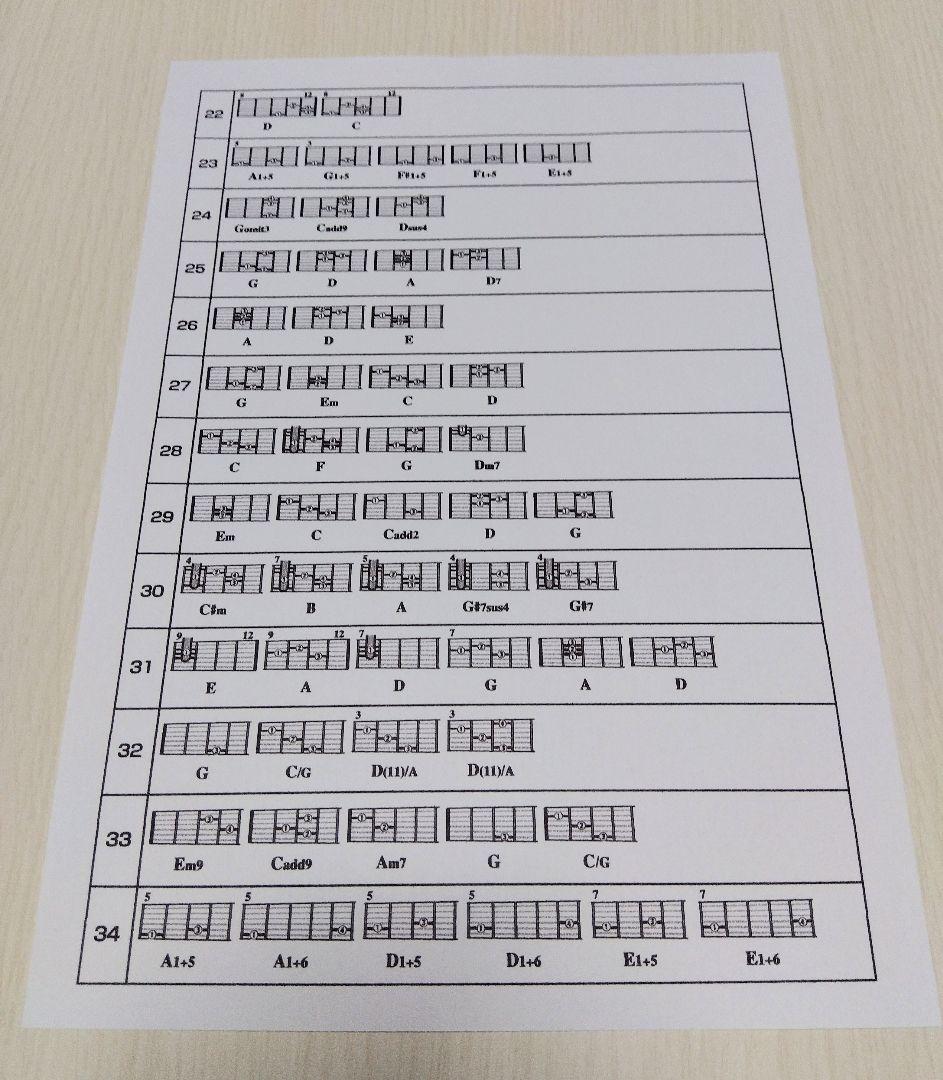 22
8 12 8 12
D C
23
3
A1+5 G1+5 F#1+5 F1+5 E1+5
24
Gomit3 Cadd9 Dsus4
25
G D A D7
26
A D E
27
G Em C D
28
C F G Dm7
29
Em C Cadd2 D G
30
4 7 5 4 4
C#m B A G#7sus4 G#7
31
9 12 9 12 7 7
E A D G A D
32
3 3
G C/G D(11)/A D(11)/A
33
Em9 Cadd9 Am7 G C/G
34
5 5 5 5 7 7
A1+5 A1+6 D1+5 D1+6 E1+5 E1+6